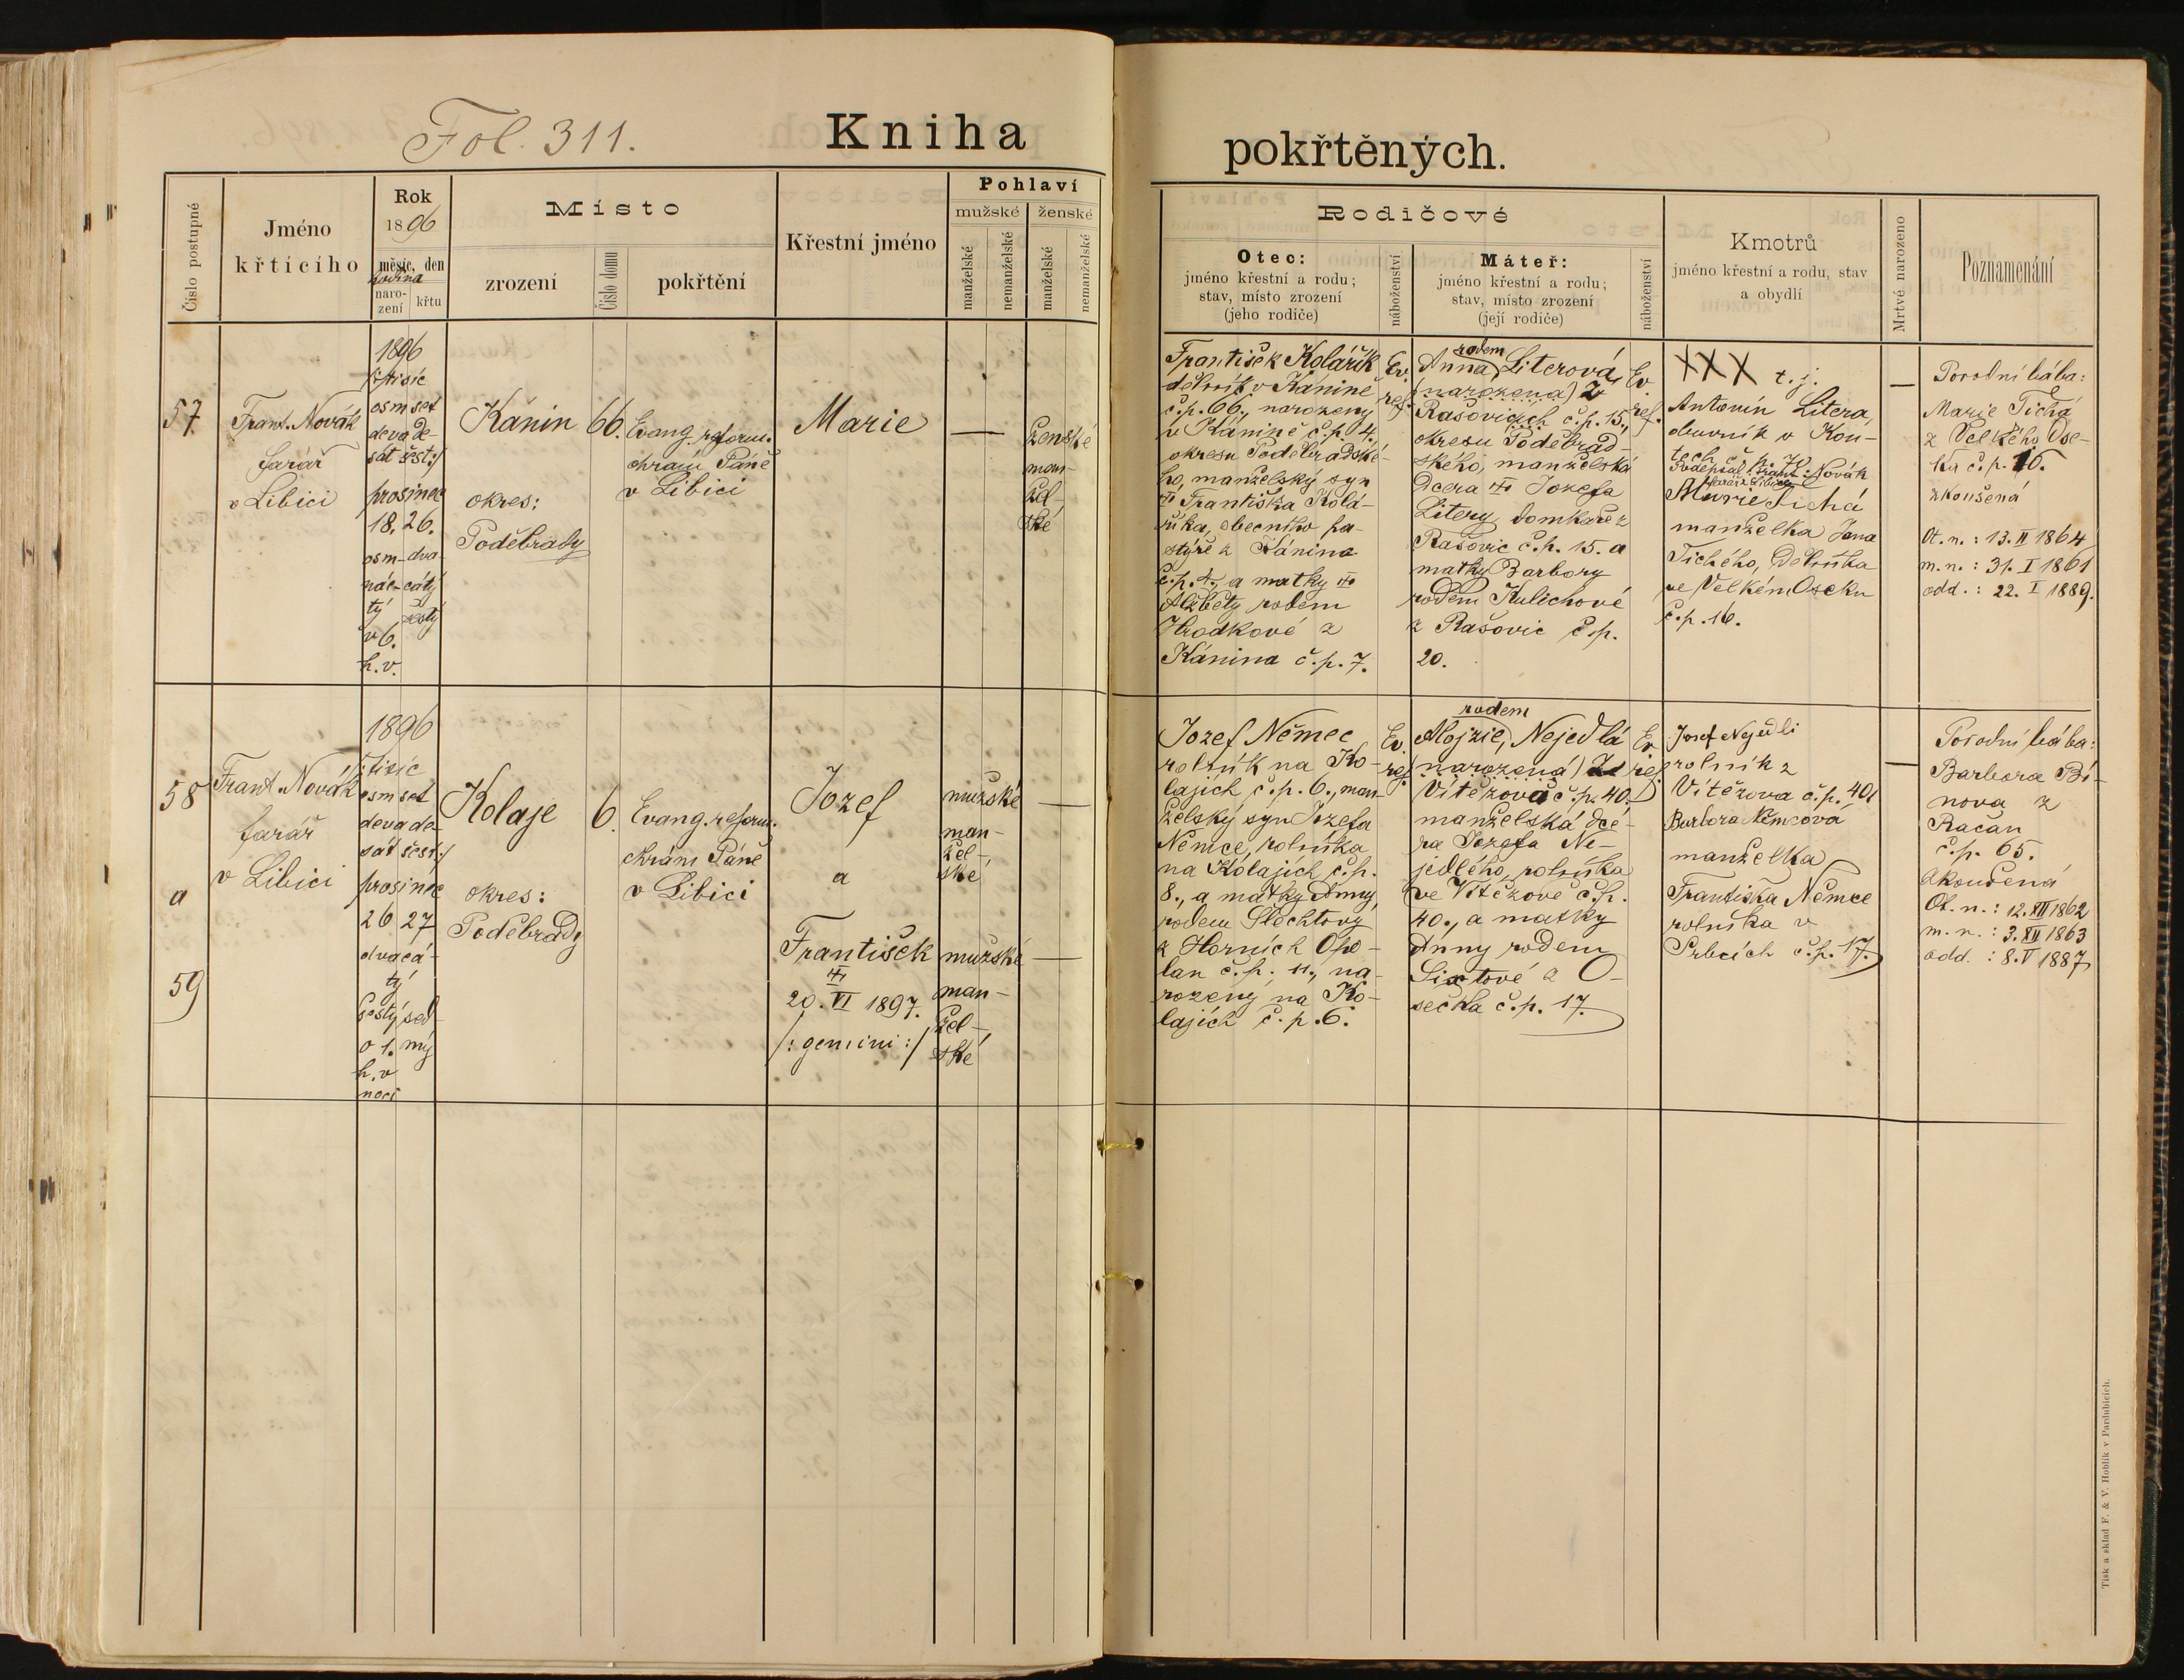 Fol. 311.
Kniha
pokřtěných.
Číslo postupné
Jméno
křtícího
Rok
1896
měsíc, den
hodina
naro-
zení
křtu
Místo
zrození
Číslo domu
pokřtění
Křestní jméno
Pohlaví
mužské
ženské
manželské
nemanželské
manželské
nemanželské
Rodičové
Otec:
jméno křestní a rodu;
stav, místo zrození
(jeho rodiče)
náboženství
Máteř:
jméno křestní a rodu;
stav, místo zrození
(její rodiče)
náboženství
Kmotrů
jméno křestní a rodu, stav
a obydlí
Mrtvě narozeno
Poznamenání
57.
Frant. Novák
farář
v Libici
1896
/:tisíc
osmset
devade-
sát šest:/
prosinec
18. 26.
osm- dva-
nác- cátý
tý šestý
v 6.
h. v.
Kánín
okres:
Poděbrady
66.
Evang. reform.
chrám Páně
v Libici
Marie
—
ženské
man-
žel-
ské
František Kolářík
dělník v Káníně
č.p. 66., narozený
v Káníně č.p. 4.
okresu Poděbradské-
ho, manželský syn
Františka Kolá-
říka, obecního pa-
stýře z Kánína
č.p. 4., a matky
Alžběty rodem
Hrodkové z
Kánína č.p. 7.
Ev.
ref.
rodem
Anna Literová,
(narozená) z
Rašovicích č.p. 15.,
okresu Poděbrad-
ského, manželská
dcera Jozefa
Litery, domkáře z
Rašovic č.p. 15. a
matky Barbory
rodem Kulichové
z Rašovic č.p.
20.
Ev.
ref.
XXX t. j.
Antonín Litera
obuvník v Kou-
tech č. p.
Podepsal Frant. Novák
farář z Libice
Marie Tichá
manželka Jana
Tichého, dělníka
ve Velkém Oseku
č.p. 16.
—
Porodní bába:
Marie Tichá
z Velkého Ose-
ka č.p. 16.
zkoušená
Ot. n.: 13. II 1864
m. n.: 31. I 1861
odd.: 22. I 1889.
58
a
59
Frant. Novák
farář
v Libici
1896
/:tisíc
osmset
devade-
sát šest:/
prosinec
26 27
dvacá-
tý
šestý sed-
o 1. mý
h. v
noci
Kolaje
okres:
Poděbrady
6.
Evang. reform.
chrám Páně
v Libici
Jozef
a
František
20. VI 1897.
/: gemini :/
mužské
man-
žel-
ské
—
mužské
man-
žel-
ské
—
Jozef Němec
rolník na Ko-
lajích č.p. 6., man-
želský syn Jozefa
Němce, rolníka
na Kolajích č.p.
8., a matky Anny,
rodem Šlechtovy
z Horních Opo-
lan č.p. 11., na-
rozený na Ko-
lajích č.p. 6.
Ev.
ref.
rodem
Alojzie, Nejedlá
(narozená) Ze
Vítězova č.p. 40.
manželská dce-
ra Jozefa Ne-
jedlého, rolníka
ve Vítězově č.p.
40., a matky
Anny rodem
Sixtové z O-
sečka č.p. 17.
Ev
ref
Josef Nejedli
rolník z
Vítězova č.p. 40.
Barbora Němcová
manželka
Františka Němce
rolníka v
Srbcích č.p. 17.
—
Porodní bába:
Barbora Bí-
nova z
Račan
č.p. 65.
zkoušená
Ot. n.: 12. XII 1862
m. n.: 3. XII 1863
odd.: 8. V 1887
Tisk a sklad F. & V. Hoblík v Pardubicích.